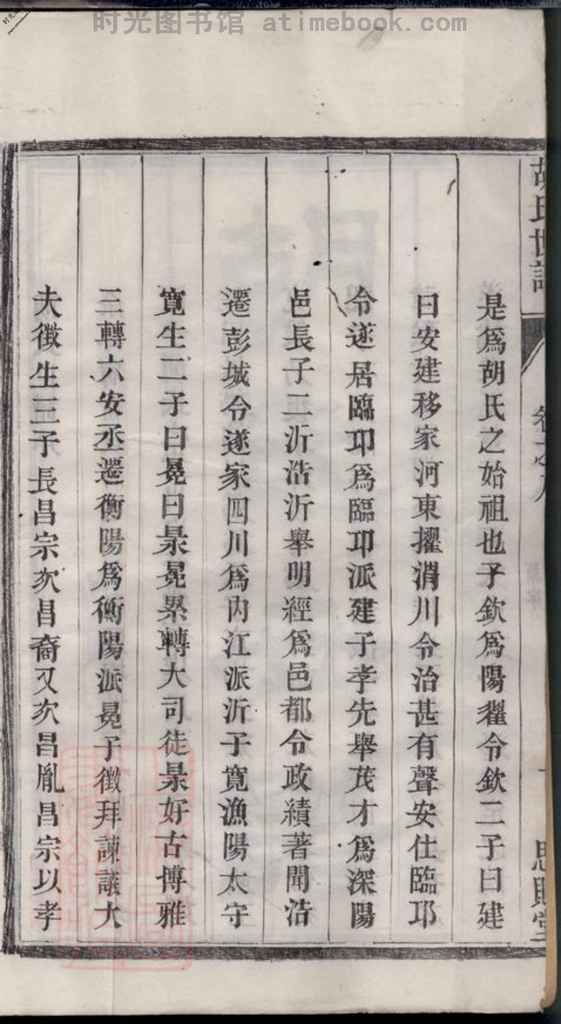 时光图书馆 atimebook.com
胡氏世譜
思貽堂
是爲胡氏之始祖也子欽爲陽翟令欽二子曰建
曰安建移家河東擢淯川令治甚有聲安仕臨邛
令遂居臨邛爲臨邛派建子孝先舉茂才爲深陽
邑長子二沂浩沂舉明經爲邑都令政績著聞浩
遷彭城令遂家四川爲內江派沂子寬漁陽太守
寬生二子曰冕曰景冕累轉大司徒景好古博雅
三轉六安丞遷衡陽爲衡陽派冕子徵拜諫議大
夫徵生三子長昌宗次昌裔又次昌胤昌宗以孝